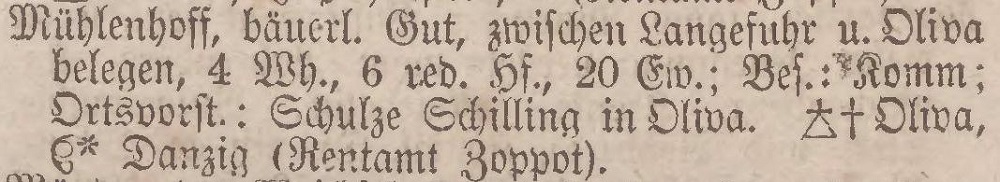 Mühlenhoff, bäuerl. Gut, zwischen Langefuhr u. Oliva
belegen, 4 Wh., 6 red. Hf., 20 Ew.; Bes.: Komm;
Ortsvorst.: Schulze Schilling in Oliva. † Oliva,
* Danzig (Rentamt Zoppot).